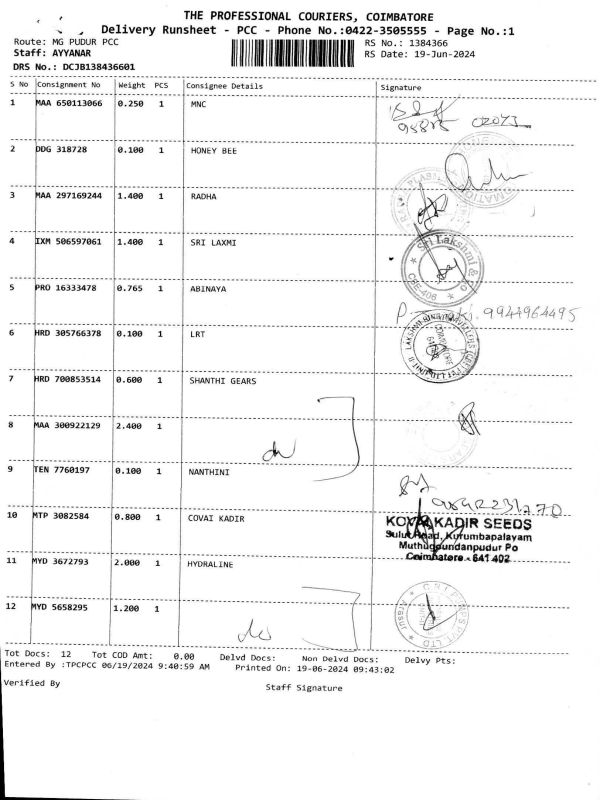 THE PROFESSIONAL COURIERS, COIMBATORE
Delivery Runsheet - PCC - Phone No.:0422-3505555 - Page No.:1
Route: MG PUDUR PCC RS No.: 1384366
Staff: AYYANAR RS Date: 19-Jun-2024
DRS No.: DCJB138436601
S No Consignment No Weight PCS Consignee Details Signature
1 MAA 650113066 0.250 1 MNC
2 DDG 318728 0.100 1 HONEY BEE
3 MAA 297169244 1.400 1 RADHA
4 IXM 506597061 1.400 1 SRI LAXMI
Sri Lakshmi &
CBE-406
5 PRO 16333478 0.765 1 ABINAYA
9944964495
6 HRD 305766378 0.100 1 LRT
7 HRD 700853514 0.600 1 SHANTHI GEARS
8 MAA 300922129 2.400 1
9 TEN 7760197 0.100 1 NANTHINI
10 MTP 3082584 0.800 1 COVAI KADIR
KOVAI KADIR SEEDS
Sulur Road, Kurumbapalayam
Muthugoundanpudur Po
Coimbatore - 641 402
11 MYD 3672793 2.000 1 HYDRALINE
12 MYD 5658295 1.200 1
Tot Docs: 12 Tot COD Amt: 0.00 Delvd Docs: Non Delvd Docs: Delvy Pts:
Entered By :TPCPCC 06/19/2024 9:40:59 AM Printed On: 19-06-2024 09:43:02
Verified By Staff Signature